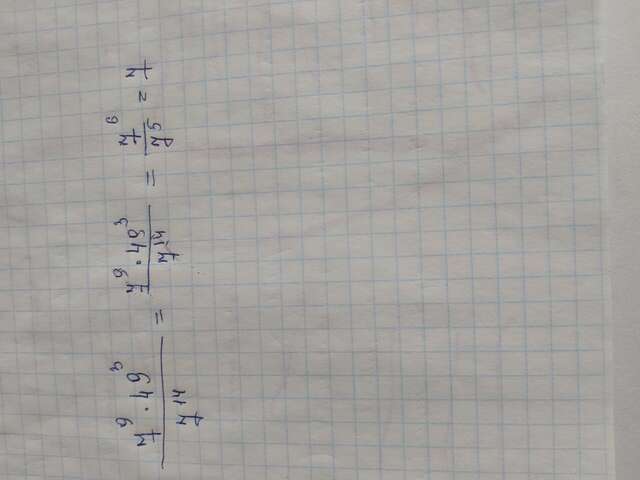 7⁹ · 49³ / 7¹⁴ = 7⁹ · 49³ / 7¹⁴ = 7⁶ / 7⁵ = 7